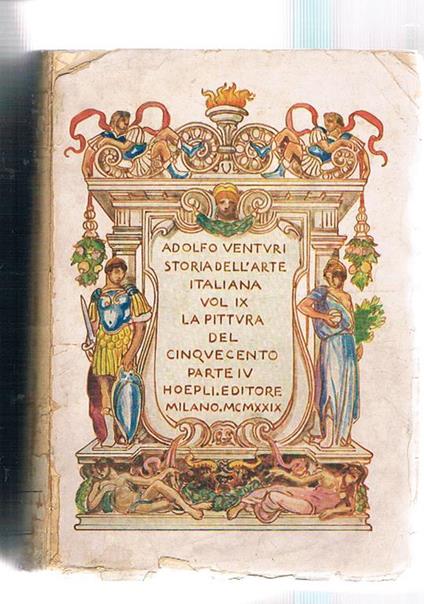 ADOLFO VENTVRI
STORIA DELL'ARTE
ITALIANA
VOL IX
LA PITTVRA
DEL
CINQVECENTO
PARTE IV
HOEPLI. EDITORE
MILANO. MCMXXIX